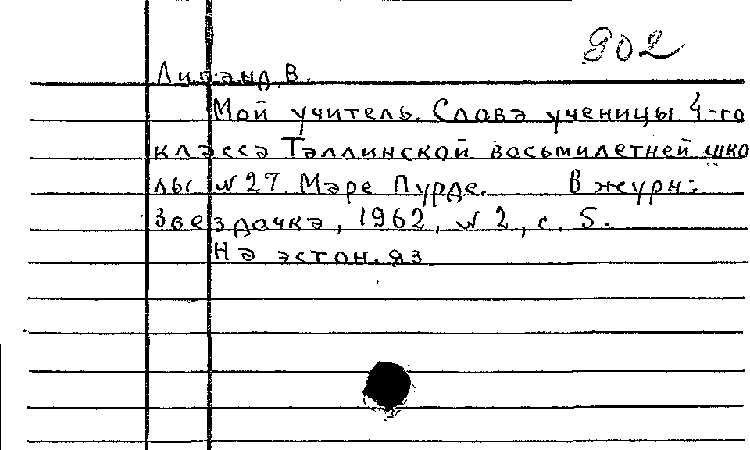 802
Липанд В.
Мой учитель. Слова ученицы 4-го
класса Таллинской восьмилетней шко
лы N 27. Маре Пурде. В журн:
Звездочка, 1962, N 2, с. 5.
На эстон. яз